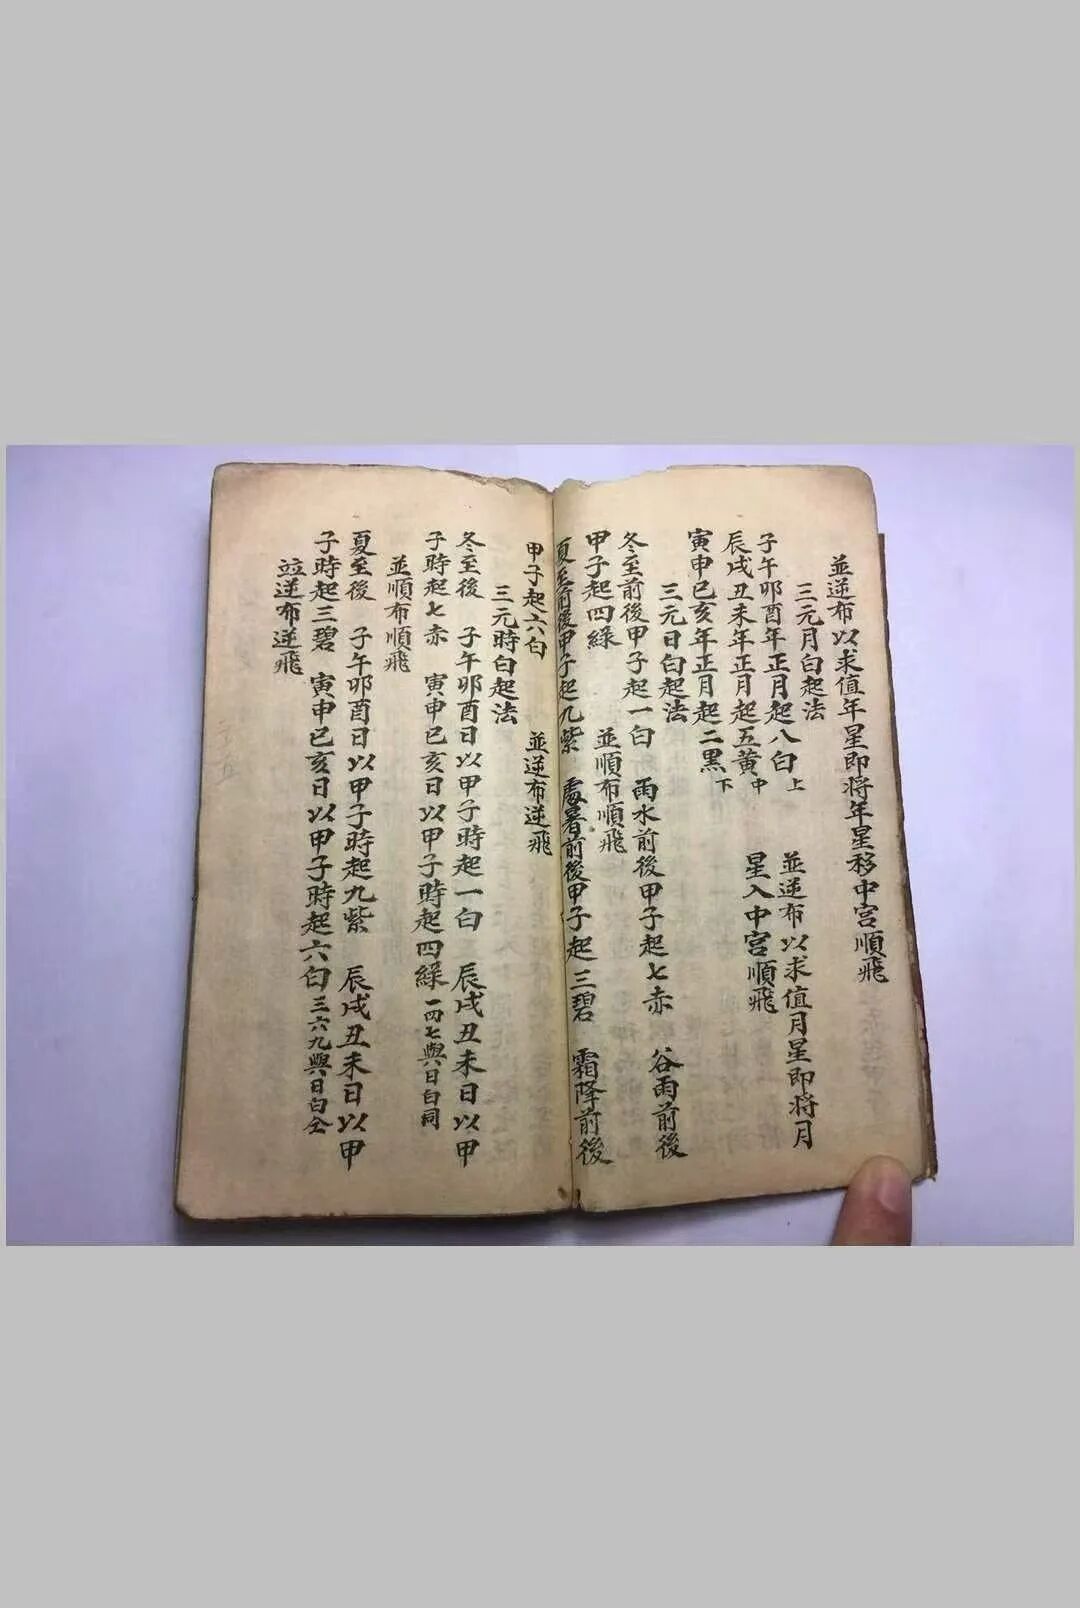 並逆布以求值年星即將年星移中宮順飛
三元月白起法
子午卯酉年正月起八白上
辰戌丑未年正月起五黃中
寅申巳亥年正月起二黑下
並逆布以求值月星即將月
星入中宮順飛
三元日白起法
冬至前後甲子起一白 雨水前後甲子起七赤 谷雨前後
甲子起四綠 並順布順飛
夏至前後甲子起九紫 處暑前後甲子起三碧 霜降前後
甲子起六白 並逆布逆飛
三元時白起法
冬至後 子午卯酉日以甲子時起一白 辰戌丑未日以甲
子時起七赤 寅申巳亥日以甲子時起四綠一四七與日白同
並順布順飛
夏至後 子午卯酉日以甲子時起九紫 辰戌丑未日以甲
子時起三碧 寅申巳亥日以甲子時起六白三六九與日白仝
竝逆布逆飛